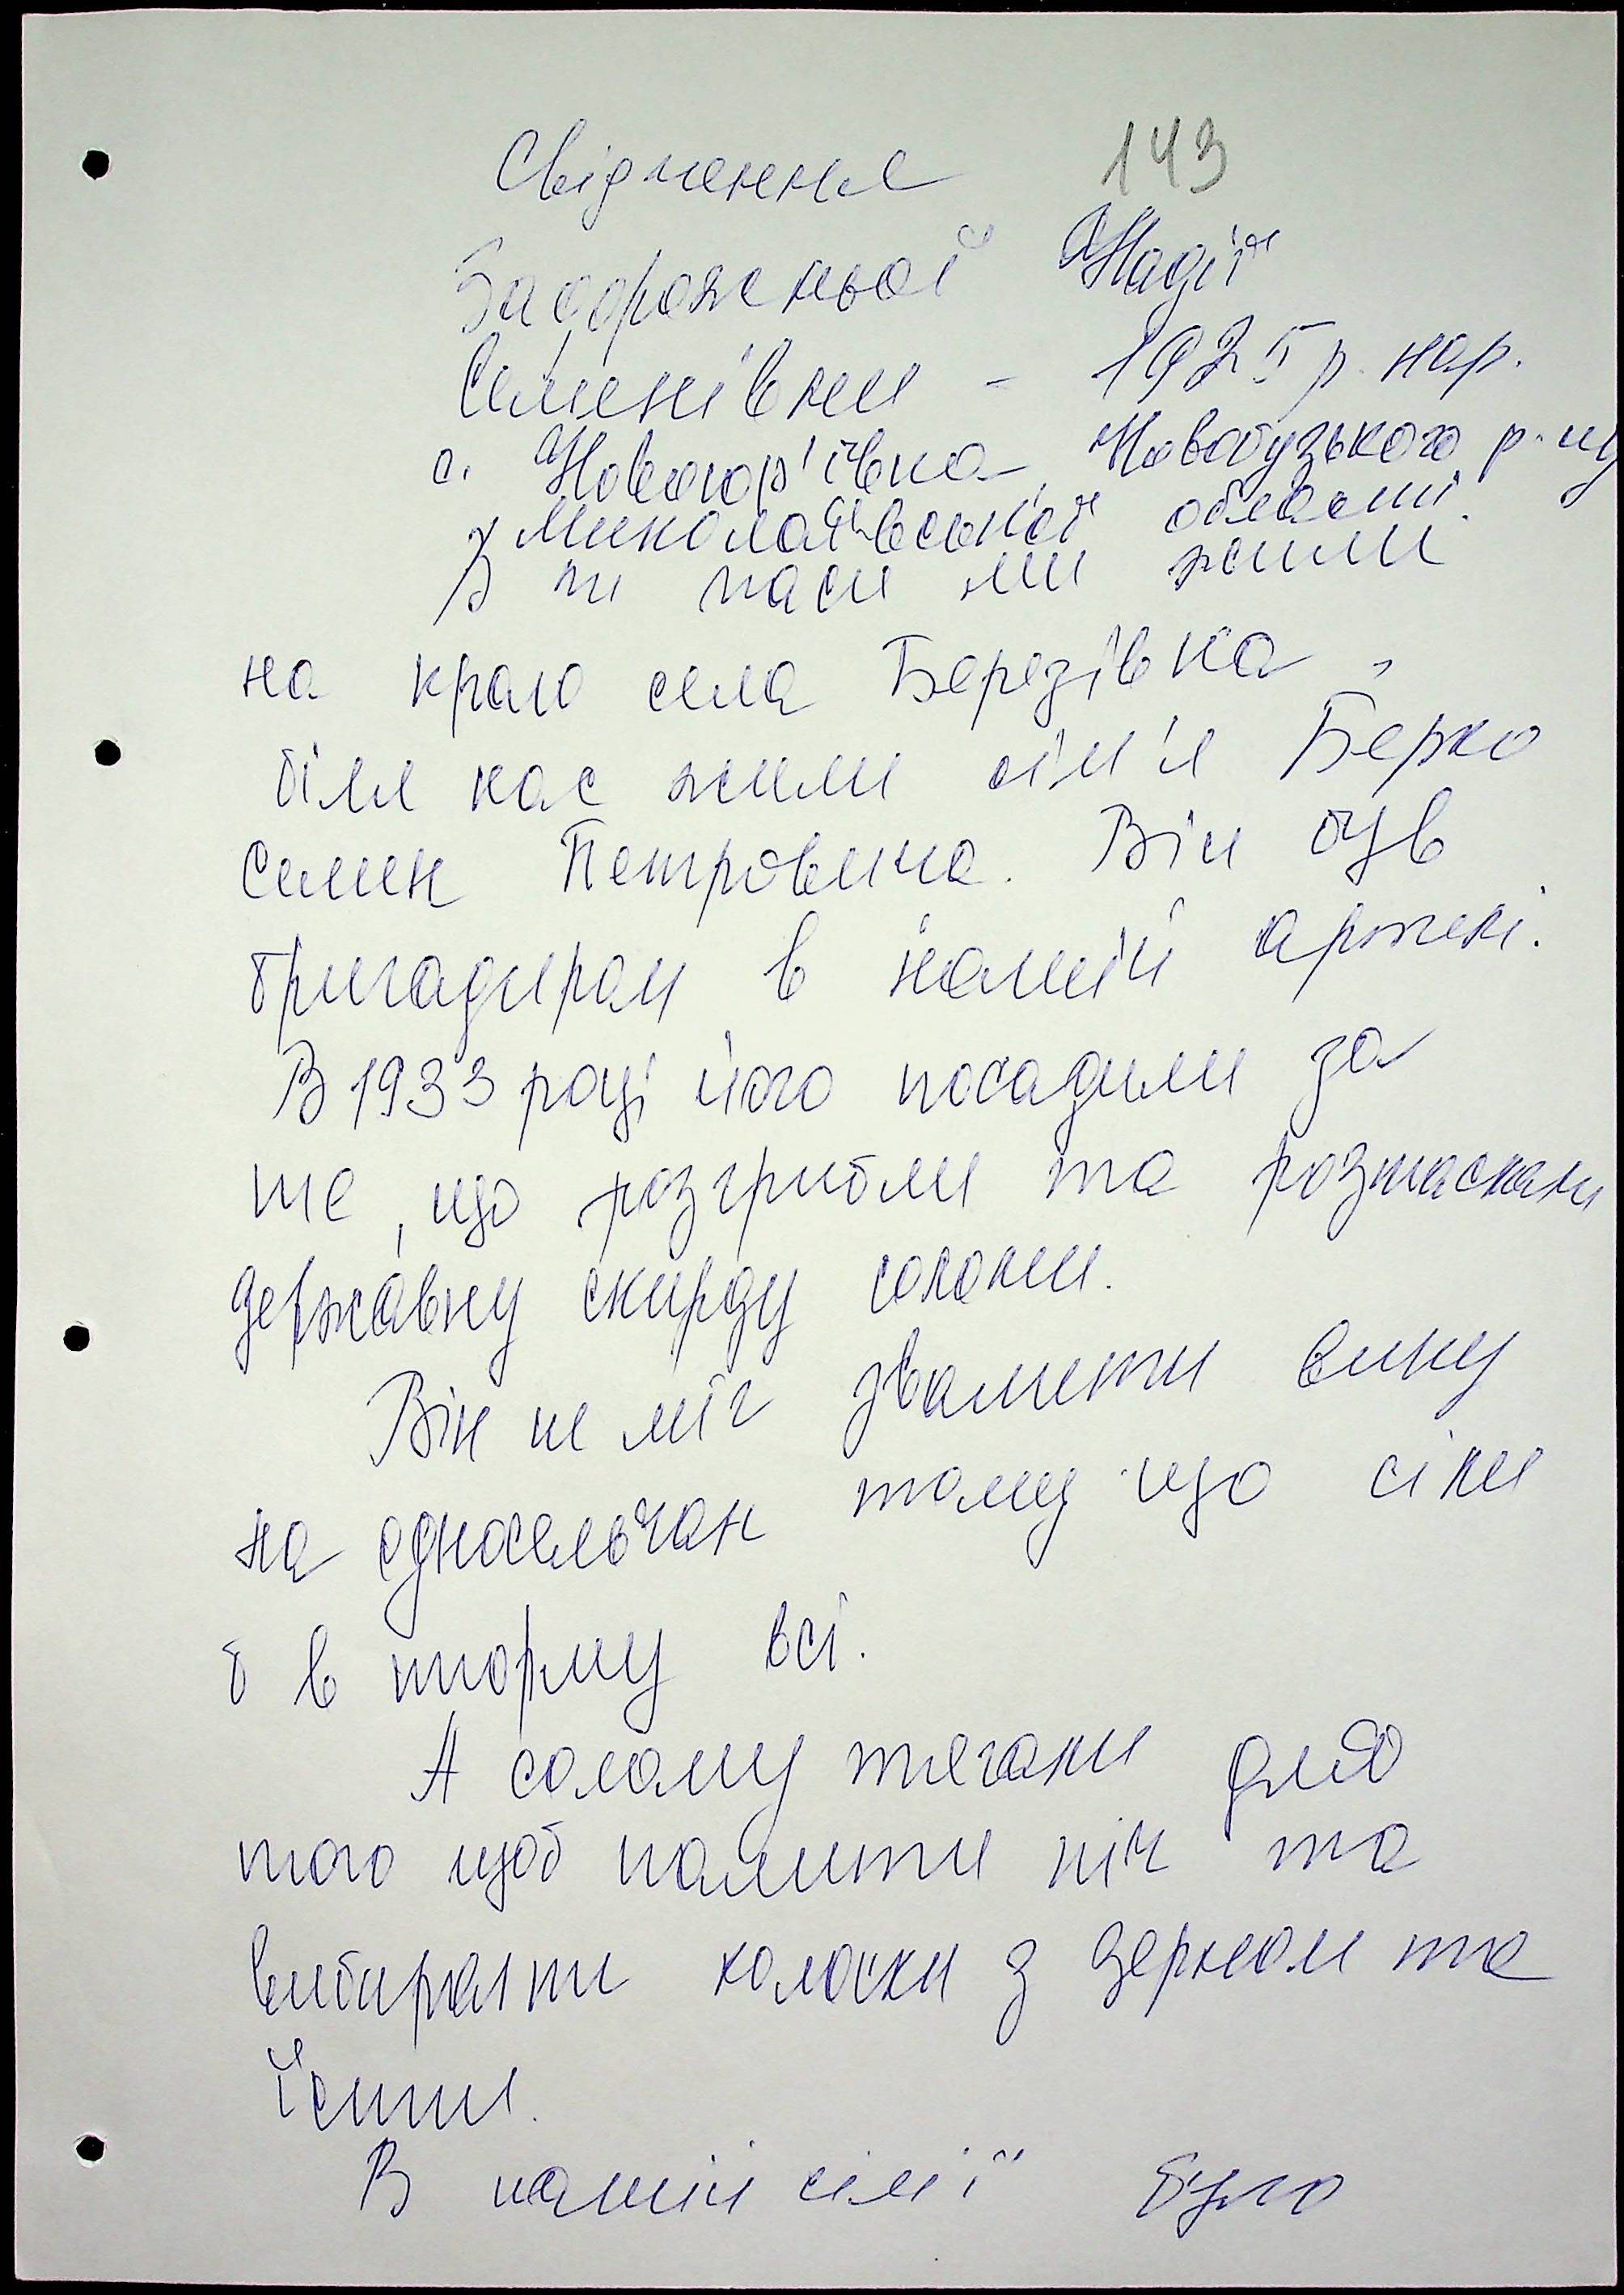 Свідчення 143
Загорожньої Надії
Семенівни - 1925 р. нар.
с. Новоюр'ївка Новобузького р-ну
Миколаївської області.
В ті часи ми жили
на краю села Березівка,
біля нас жили сім'я Берко
Семен Петровича. Він був
бригадиром в нашій артелі.
В 1933 році його посадили за
те, що розгрибли та розтаскали
державну скирду соломи.
Він не міг звалити вину
на односельчан тому що сіли
б в тюрму всі.
А солому тягали для
того щоб палити піч та
вибирати колоски з зерном та
їсти.
В нашій сім'ї було